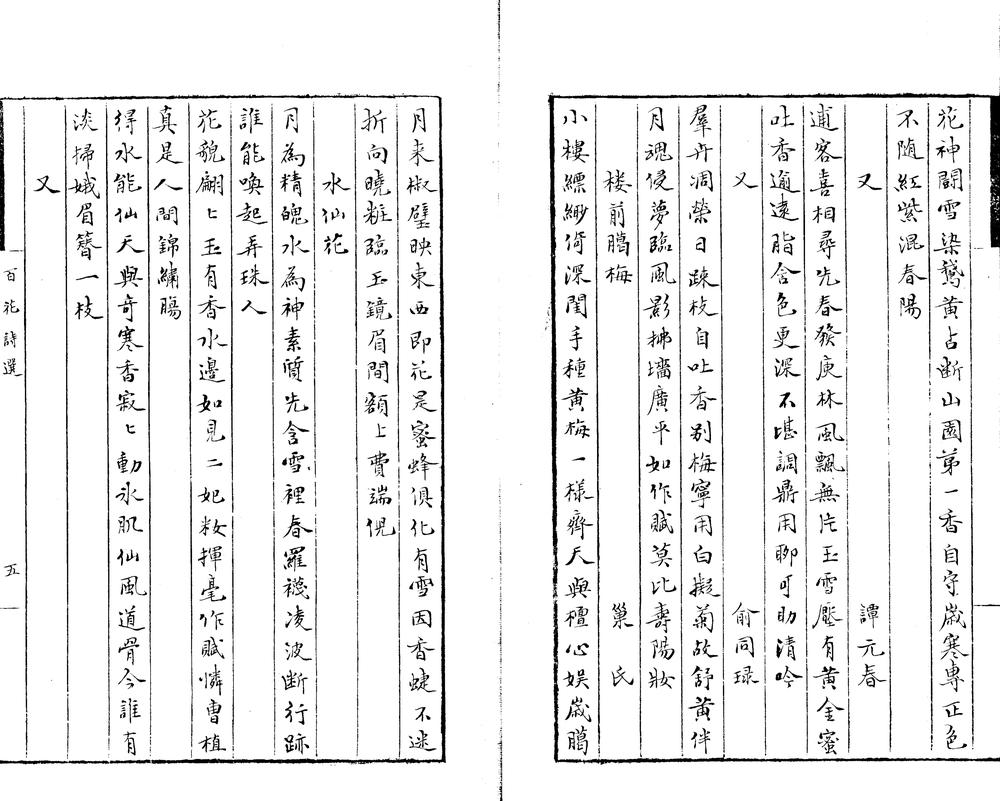 花神鬭雪染鵞黄占断山園苐一香自守歳寒專正色
不随紅紫混春陽
又 譚元春
逋客喜相尋先春發庾林風飄無片玉雪壓有黄金蜜
吐香逾遠脂含色更深不堪調鼎用聊可助清吟
又 俞同琭
羣卉凋榮日疎枝自吐香别梅寧用白擬菊故舒黄伴
月魂侵夢臨風影拂墻廣平如作賦莫比壽陽妝
楼前臈梅 巢氏
小樓縹緲倚深閨手種黄梅一様齊天與檀心娱歳臈
月来椒壁映東西即花是蜜蜂俱化有雪因香蜨不迷
折向曉粧臨玉鏡眉間額上費端倪
水仙花
月為精魄水為神素質先含雪裡春羅襪凌波断行跡
誰能喚起弄珠人
花貌翩〻玉有香水邊如見二妃妝揮毫作賦憐曹植
真是人間錦繡腸
得水能仙天與奇寒香寂〻動冰肌仙風道骨今誰有
淡掃娥眉簪一枝
又
百花詩選
五